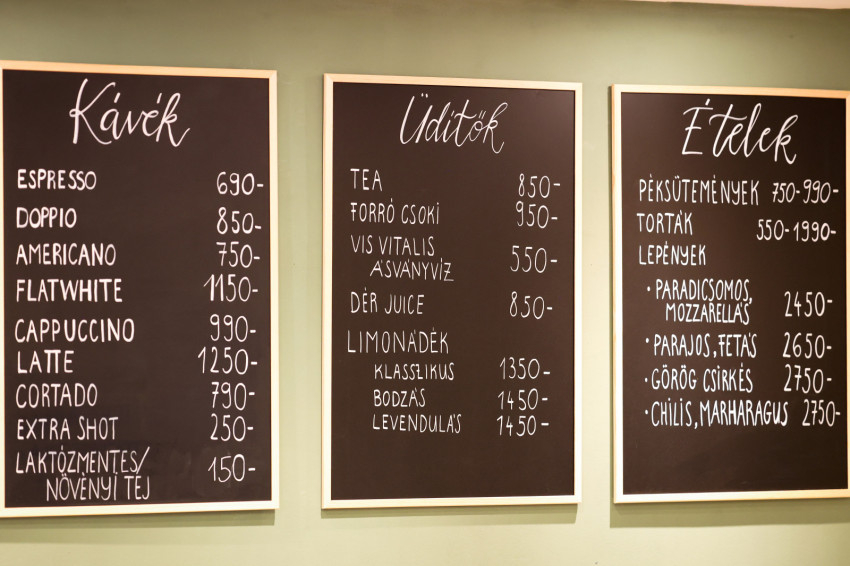 Kávék
ESPRESSO 690-
DOPPIO 850-
AMERICANO 750-
FLATWHITE 1150-
CAPPUCCINO 990-
LATTE 1250-
CORTADO 790-
EXTRA SHOT 250-
LAKTÓZMENTES/ 150-
NÖVÉNYI TEJ
Üdítők
TEA 850-
FORRÓ CSOKI 950-
VIS VITALIS 550-
ÁSVÁNYVÍZ
DÉR JUICE 850-
LIMONÁDÉK
KLASSZIKUS 1350-
BODZÁS 1450-
LEVENDULÁS 1450-
Ételek
PÉKSÜTEMÉNYEK 750-990-
TORTÁK 550-1990-
LEPÉNYEK
• PARADICSOMOS, 2450-
MOZZARELLÁS
• PARAJOS, FETÁS 2650-
• GÖRÖG CSIRKÉS 2750-
• CHILIS, MARHARAGUS 2750-